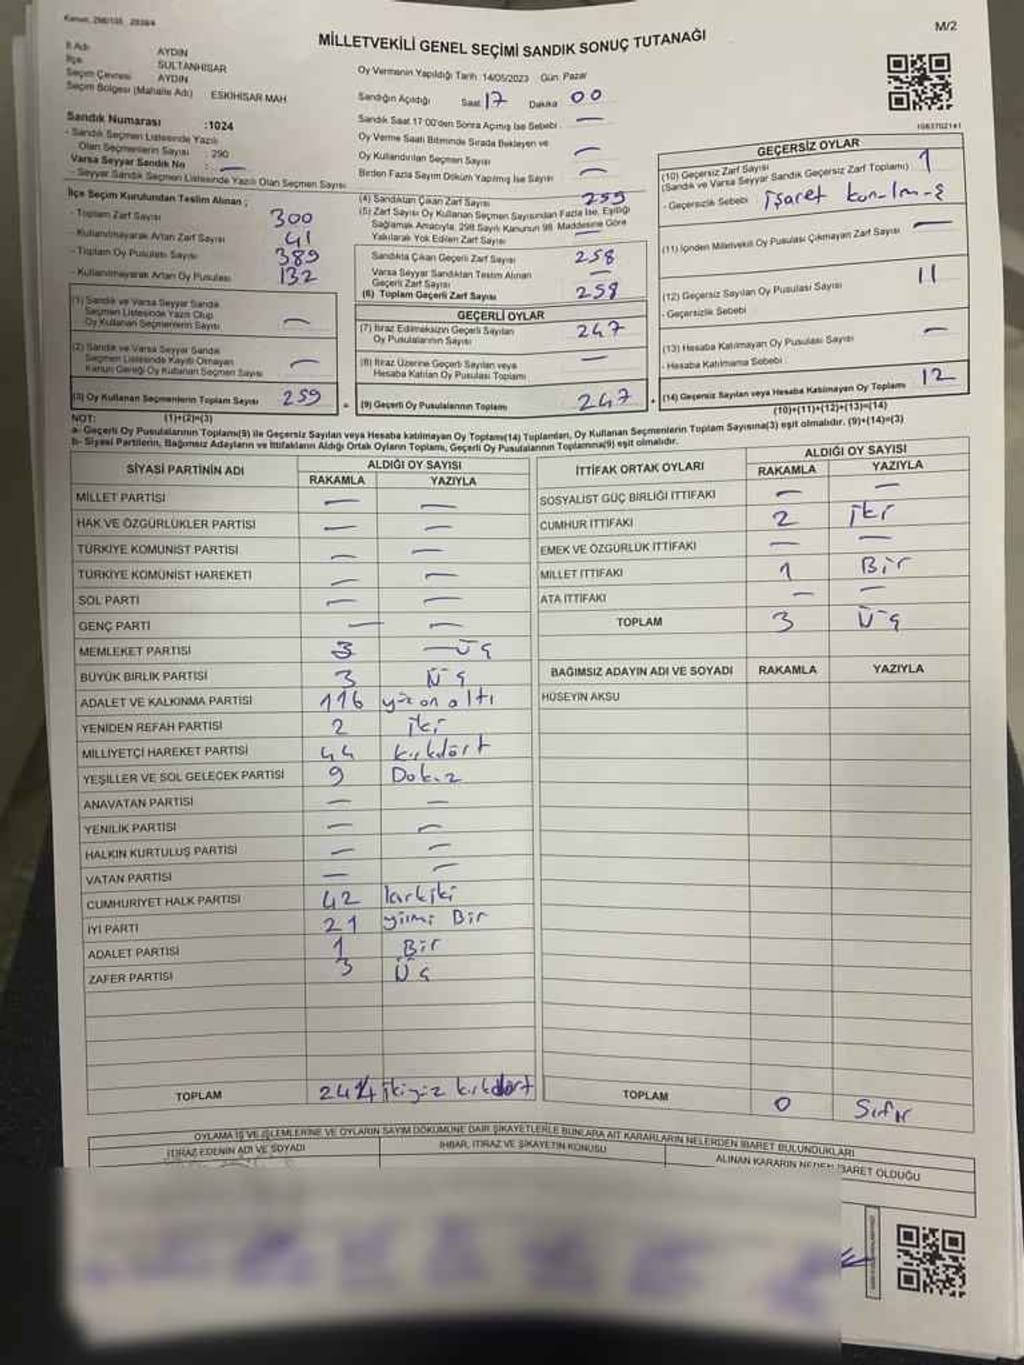 Kanun, 298/105
M/2
MİLLETVEKİLİ GENEL SEÇİMİ SANDIK SONUÇ TUTANAĞI
İl Adı AYDIN
İlçe SULTANHİSAR
Seçim Çevresi AYDIN
Seçim Bölgesi (Mahalle Adı) ESKİHİSAR MAH
Sandık Numarası :1024
- Sandık Seçmen Listesinde Yazılı
Olan Seçmenlerin Sayısı : 290
Varsa Seyyar Sandık No : —
- Seyyar Sandık Seçmen Listesinde Yazılı Olan Seçmen Sayısı
İlçe Seçim Kurulundan Teslim Alınan ;
- Toplam Zarf Sayısı 300
- Kullanılmayarak Artan Zarf Sayısı 41
- Toplam Oy Pusulası Sayısı 389
- Kullanılmayarak Artan Oy Pusulası 132
(1) Sandık ve Varsa Seyyar Sandık
Seçmen Listesinde Yazılı Olup
Oy Kullanan Seçmenlerin Sayısı —
(2) Sandık ve Varsa Seyyar Sandık
Seçmen Listesinde Kayıtlı Olmayan
Kanun Gereği Oy Kullanan Seçmen Sayısı —
(3) Oy Kullanan Seçmenlerin Toplam Sayısı 259
(1)+(2)=(3)
Oy Vermenin Yapıldığı Tarih: 14/05/2023 Gün: Pazar
Sandığın Açıldığı Saat 17 Dakika 00
Sandık Saat 17:00'den Sonra Açılmış İse Sebebi : —
Oy Verme Saati Bitiminde Sırada Bekleyen ve
Oy Kullandırılan Seçmen Sayısı —
Birden Fazla Sayım Döküm Yapılmış İse Sayısı —
(4) Sandıktan Çıkan Zarf Sayısı 259
(5) Zarf Sayısı Oy Kullanan Seçmen Sayısından Fazla İse, Eşitliği
Sağlamak Amacıyla, 298 Sayılı Kanunun 98. Maddesine Göre
Yakılarak Yok Edilen Zarf Sayısı
Sandıkta Çıkan Geçerli Zarf Sayısı 258
Varsa Seyyar Sandıktan Teslim Alınan
Geçerli Zarf Sayısı —
(6) Toplam Geçerli Zarf Sayısı 258
GEÇERLİ OYLAR
(7) İtiraz Edilmeksizin Geçerli Sayılan
Oy Pusulalarının Sayısı 247
(8) İtiraz Üzerine Geçerli Sayılan veya
Hesaba Katılan Oy Pusulası Toplamı —
= (9) Geçerli Oy Pusulalarının Toplamı 247
1063702141
GEÇERSİZ OYLAR
(10) Geçersiz Zarf Sayısı 1
(Sandık ve Varsa Seyyar Sandık Geçersiz Zarf Toplamı)
- Geçersizlik Sebebi işaret konulmuş
(11) İçinden Milletvekili Oy Pusulası Çıkmayan Zarf Sayısı —
(12) Geçersiz Sayılan Oy Pusulası Sayısı 11
- Geçersizlik Sebebi
(13) Hesaba Katılmayan Oy Pusulası Sayısı —
- Hesaba Katılmama Sebebi
+ (14) Geçersiz Sayılan veya Hesaba Katılmayan Oy Toplamı 12
(10)+(11)+(12)+(13)=(14)
NOT:
a- Geçerli Oy Pusulalarının Toplamı(9) ile Geçersiz Sayılan veya Hesaba katılmayan Oy Toplamı(14) Toplamları, Oy Kullanan Seçmenlerin Toplam Sayısına(3) eşit olmalıdır. (9)+(14)=(3)
b- Siyasi Partilerin, Bağımsız Adayların ve İttifakların Aldığı Ortak Oyların Toplamı, Geçerli Oy Pusulalarının Toplamına(9) eşit olmalıdır.
SİYASİ PARTİNİN ADI ALDIĞI OY SAYISI
RAKAMLA YAZIYLA
MİLLET PARTİSİ — —
HAK VE ÖZGÜRLÜKLER PARTİSİ — —
TÜRKİYE KOMÜNİST PARTİSİ — —
TÜRKİYE KOMÜNİST HAREKETİ — —
SOL PARTİ — —
GENÇ PARTİ — —
MEMLEKET PARTİSİ 3 Üç
BÜYÜK BİRLİK PARTİSİ 3 Üç
ADALET VE KALKINMA PARTİSİ 116 yüz on altı
YENİDEN REFAH PARTİSİ 2 iki
MİLLİYETÇİ HAREKET PARTİSİ 44 kırkdört
YEŞİLLER VE SOL GELECEK PARTİSİ 9 Dokuz
ANAVATAN PARTİSİ — —
YENİLİK PARTİSİ — —
HALKIN KURTULUŞ PARTİSİ — —
VATAN PARTİSİ — —
CUMHURİYET HALK PARTİSİ 42 kırkiki
İYİ PARTİ 21 yirmi Bir
ADALET PARTİSİ 1 Bir
ZAFER PARTİSİ 3 Üç
TOPLAM 244 ikiyüz kırkdört
İTTİFAK ORTAK OYLARI ALDIĞI OY SAYISI
RAKAMLA YAZIYLA
SOSYALİST GÜÇ BİRLİĞİ İTTİFAKI — —
CUMHUR İTTİFAKI 2 iki
EMEK VE ÖZGÜRLÜK İTTİFAKI — —
MİLLET İTTİFAKI 1 Bir
ATA İTTİFAKI — —
TOPLAM 3 Üç
BAĞIMSIZ ADAYIN ADI VE SOYADI RAKAMLA YAZIYLA
HÜSEYİN AKSU
TOPLAM 0 Sıfır
OYLAMA İŞ VE İŞLEMLERİNE VE OYLARIN SAYIM DÖKÜMÜNE DAİR ŞİKAYETLERLE BUNLARA AİT KARARLARIN NELERDEN İBARET BULUNDUKLARI
İTİRAZ EDENİN ADI VE SOYADI
İHBAR, İTİRAZ VE ŞİKAYETİN KONUSU
ALINAN KARARIN NEDEN İBARET OLDUĞU